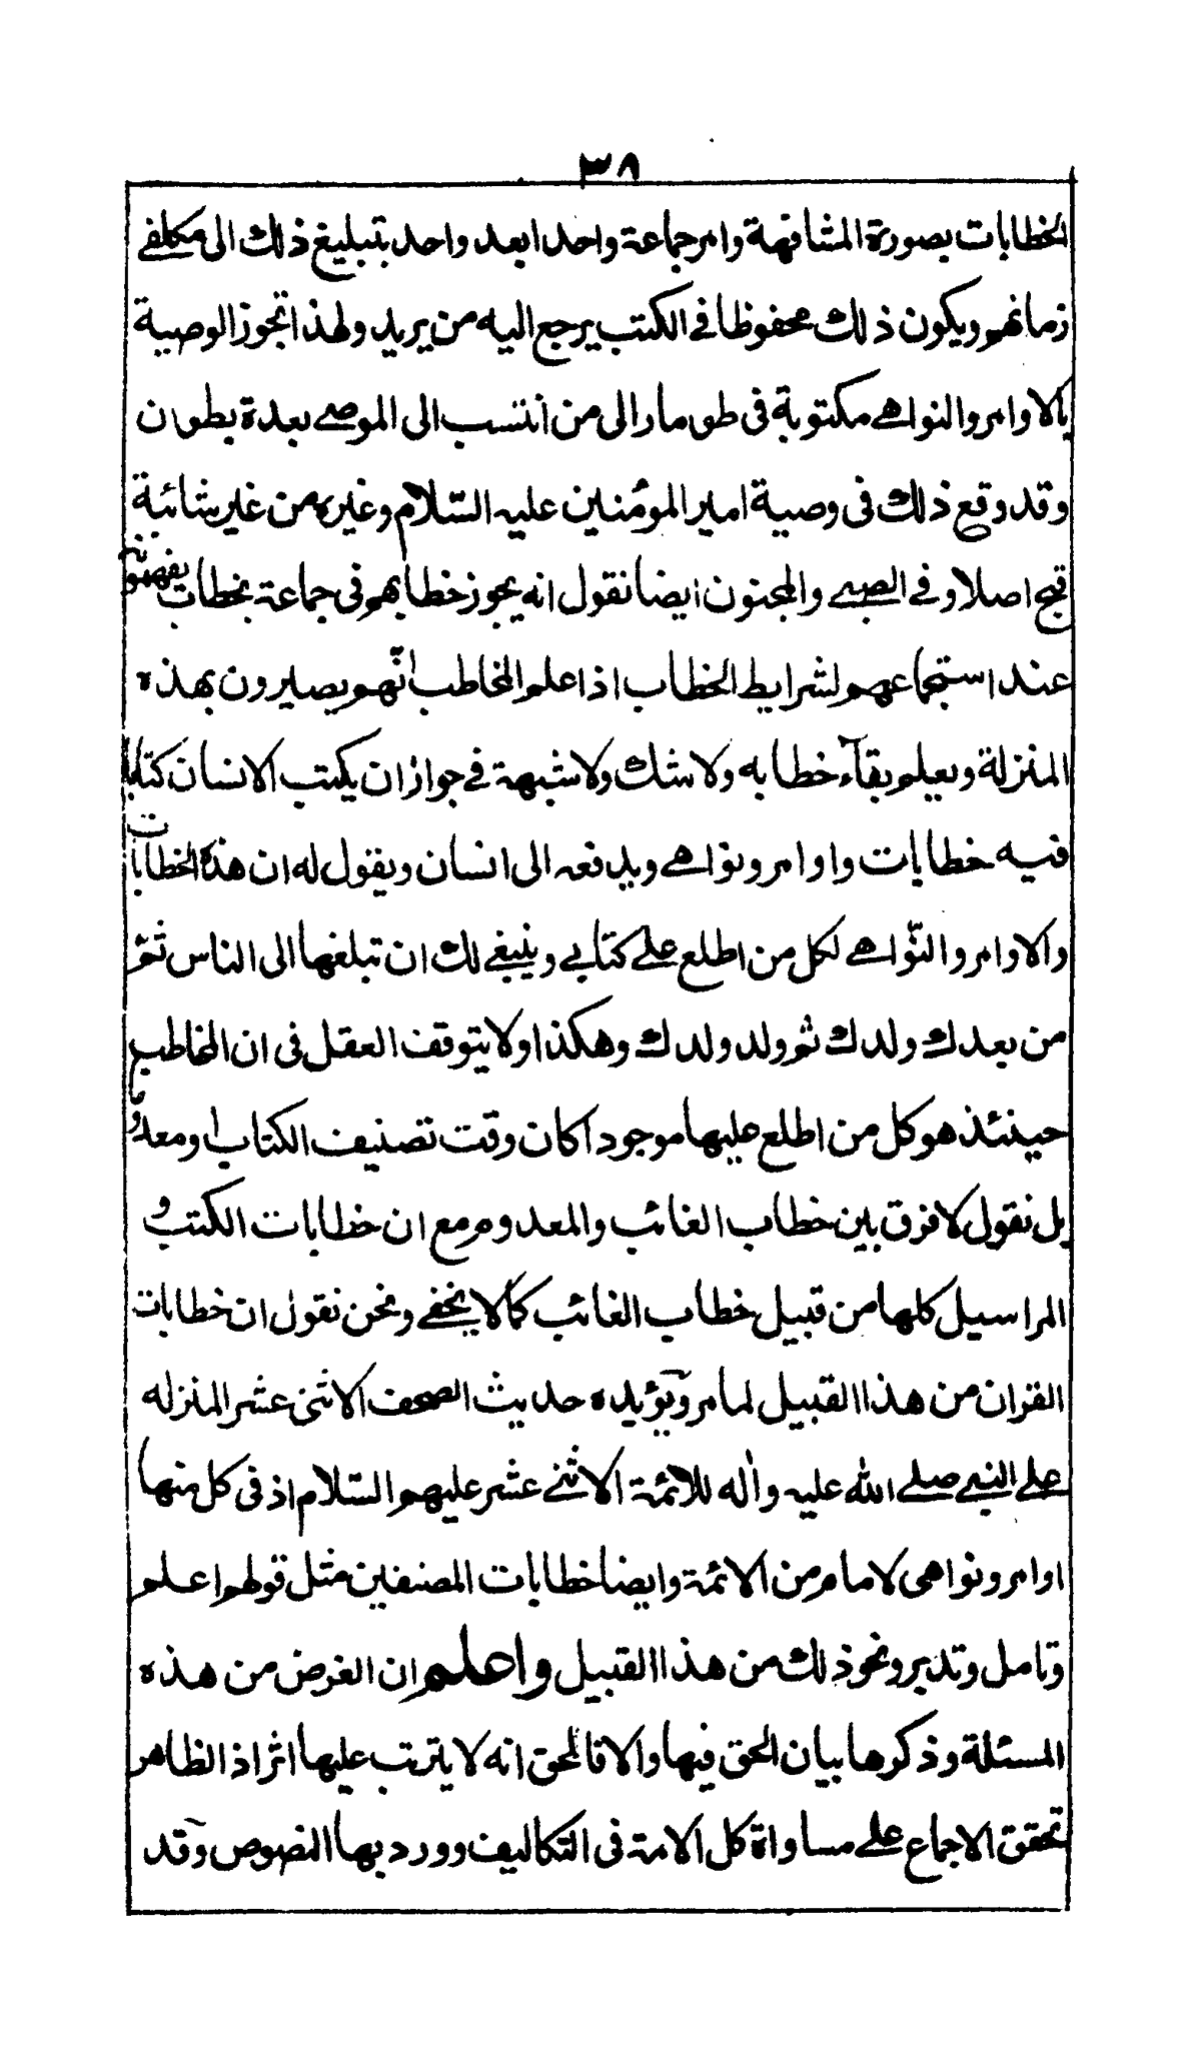 ٣٨
الخطابات بصورة المشافهة وامر جماعة واحدا بعد واحد بتبليغ ذلك الى مكلفے
زمانهم ويكون ذلك محفوظا فے الكتب يرجع اليه من يريد ولهذا تجوز الوصية
بالاوامر والنواهے مكتوبة فى طومار الى من انتسب الى الموصے بعدة بطون
وقد وقع ذلك فى وصية امير المؤمنين عليه السّلام وغيره من غير شائبة
قبح اصلا وفے الصبے والمجنون ايضا نقول انه يجوز خطابهم فى جماعة بخطاب يفهمونه
عند استجماعهم لشرايط الخطاب اذا علم المخاطب انّهم يصيرون بهذه
المنزلة ويعلم بقآء خطابه ولا شك ولا شبهة فے جواز ان يكتب الانسان كتابا
فيه خطابات واوامر ونواهے ويدفعه الى انسان ويقول له ان هذه الخطابات
والاوامر والنّواهے لكل من اطلع علے كتابے وينبغے لك ان تبلغها الى الناس ثم
من بعدك ولدك ثم ولد ولدك وهكذا ولا يتوقف العقل فى ان المخاطب
حينئذ هو كل من اطلع عليها موجودا كان وقت تصنيف الكتاب او معدوما
بل نقول لا فرق بين خطاب الغائب والمعدوم مع ان خطابات الكتب و
المراسيل كلها من قبيل خطاب الغائب كما لا يخفے ونحن نقول ان خطابات
القران من هذا القبيل لما مر ويؤيده حديث الصحف الاثنى عشر المنزله
علے النبے صلے الله عليه واله للائمة الاثنے عشر عليهم السّلام اذ فى كل منها
اوامر ونواهى لامام من الائمة وايضا خطابات المصنفين مثل قولهم اعلم
وتامل وتدبر ونحو ذلك من هذا القبيل واعلم ان الغرض من هذه
المسئلة وذكرها بيان الحق فيها والا فالحق انه لا يترتب عليها اثر اذ الظاهر
تحقق الاجماع علے مساواة كل الامة فى التكاليف وورد بها النصوص وقد